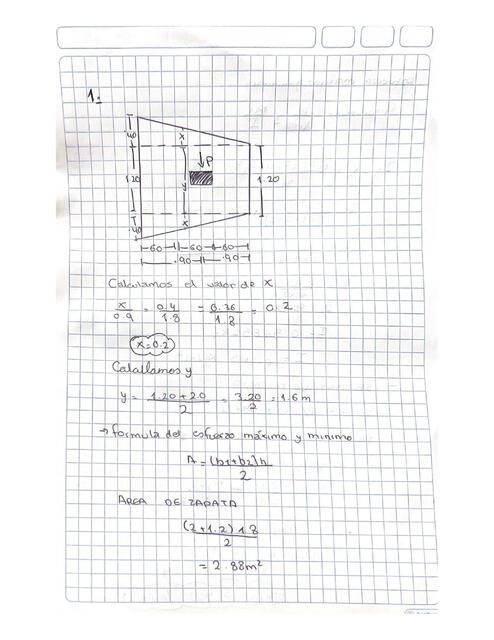 1:
.40
1.20
.40
x
y
x
P
1.20
.60 .60 .60
.90 .90
Calculamos el valor de x
x/0.9 = 0.4/1.8 = 0.36/1.8 = 0.2
x=0.2
Calculamos y
y = 1.20+2.0/2 = 3.20/2 = 1.6m
→ formula del esfuerzo máximo y minimo
A = (b1+b2)h/2
AREA DE ZAPATA
(2+1.2)1.8/2
= 2.88m²